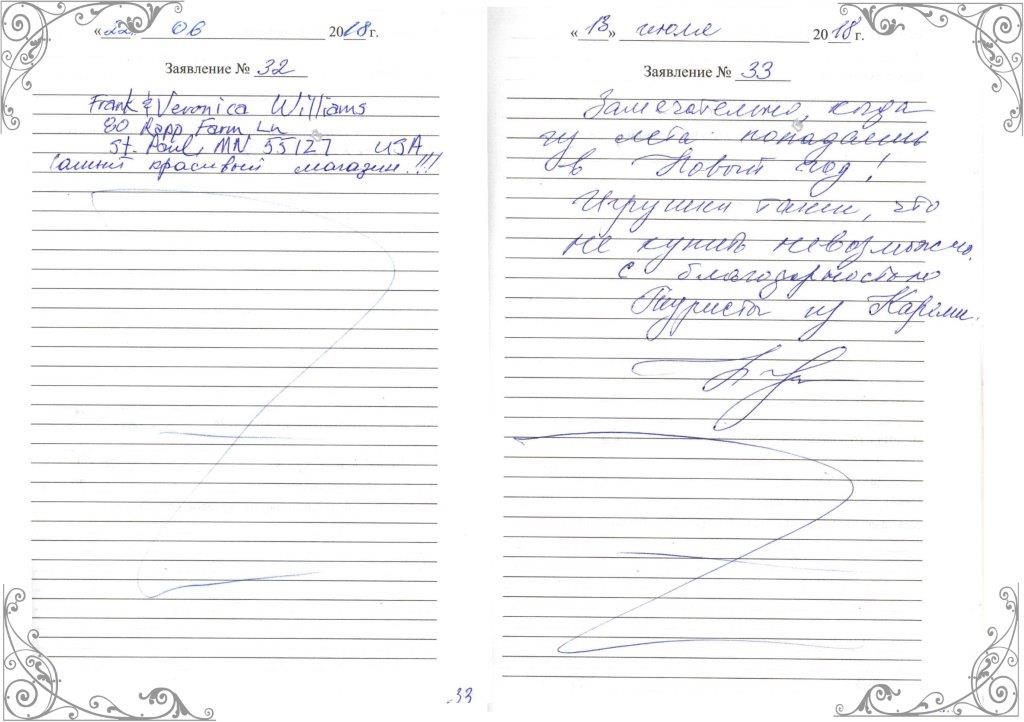 «22» 06 2018г.
Заявление № 32
Frank & Veronica Williams
80 Rapp Farm Ln
St. Paul, MN 55127 USA
Самый красивый магазин!!!
33
«13» июля 2018г.
Заявление № 33
Замечательно, когда
из лета попадаешь
в Новый год!
Игрушки такие, что
не купить невозможно.
с благодарностью
Туристы из